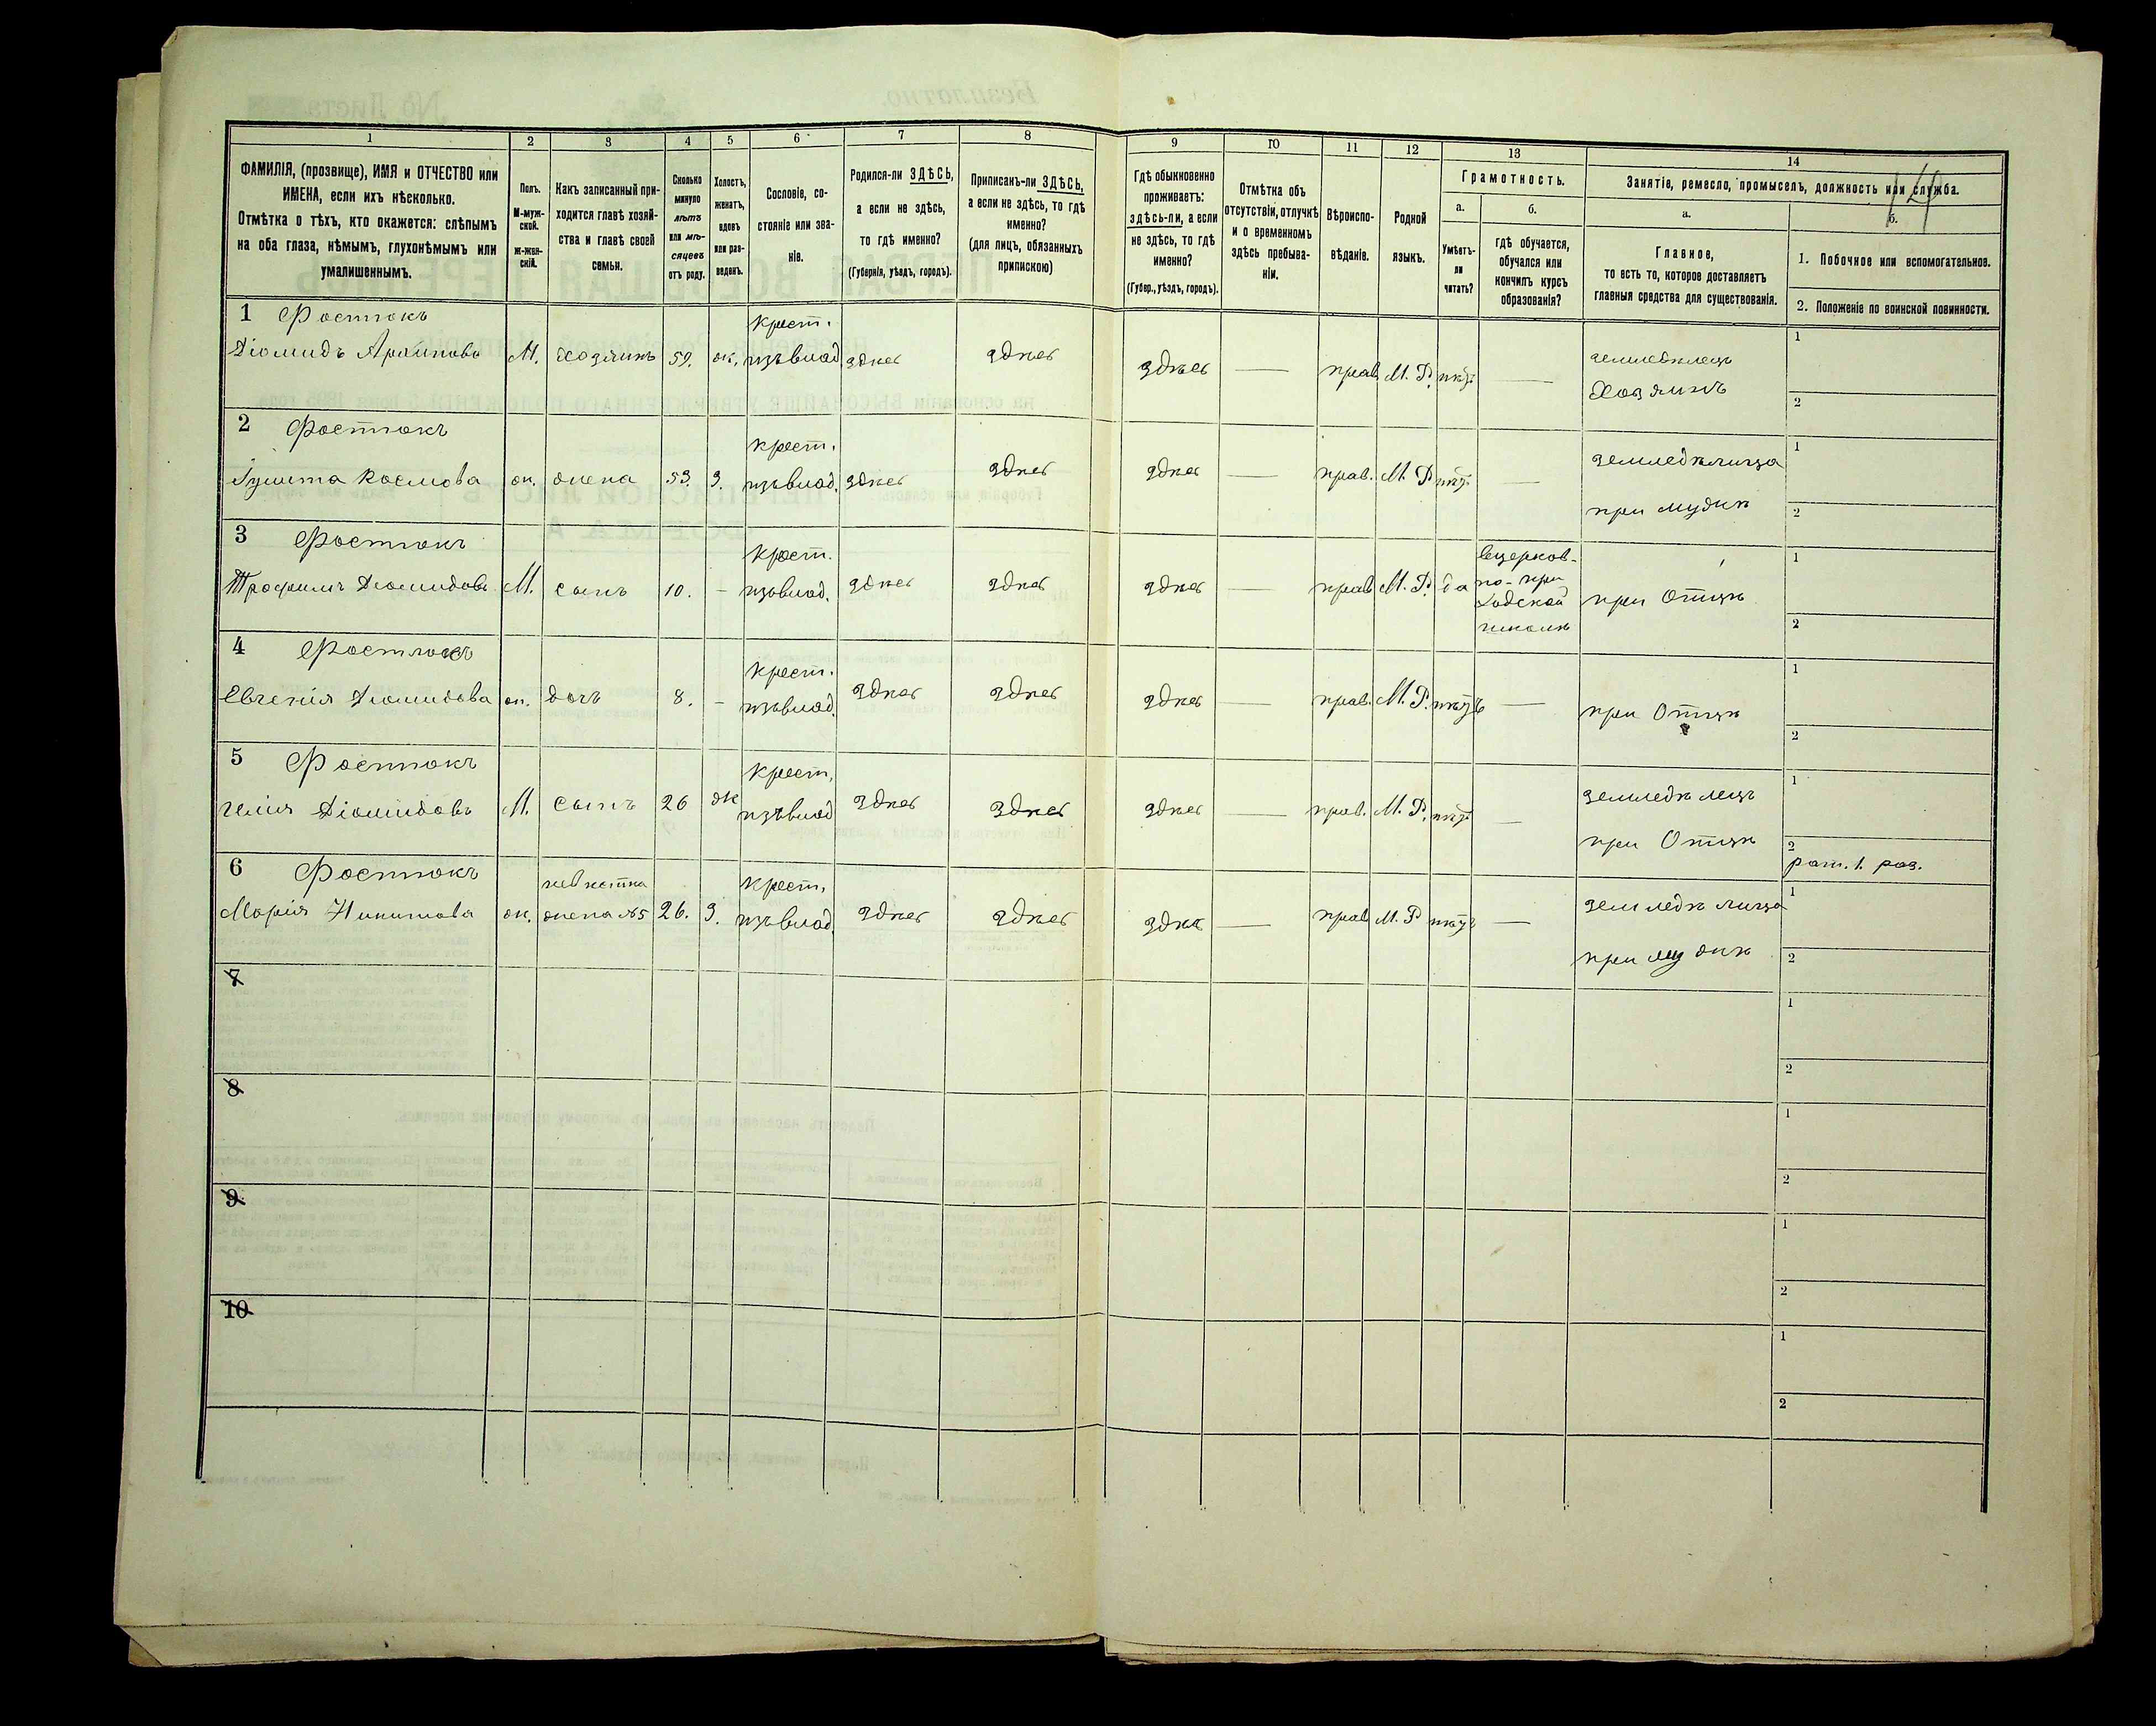 1 2 3 4 5 6 7 8 9 10 11 12 13 14
ФАМИЛІЯ, (прозвище), ИМЯ и ОТЧЕСТВО или
ИМЕНА, если ихъ нѣсколько.
Отмѣтка о тѣхъ, кто окажется: слѣпымъ
на оба глаза, нѣмымъ, глухонѣмымъ или
умалишеннымъ.
Полъ.
М-муж-
ской.
ж-жен-
скій.
Какъ записанный при-
ходится главѣ хозяй-
ства и главѣ своей
семьи.
Сколько
минуло
лѣтъ
или мѣ-
сяцевъ
отъ роду.
Холостъ,
женатъ,
вдовъ
или раз-
веденъ.
Сословіе, со-
стояніе или зва-
ніе.
Родился-ли ЗДѢСЬ,
а если не здѣсь,
то гдѣ именно?
(Губернія, уѣздъ, городъ).
Приписанъ-ли ЗДѢСЬ,
а если не здѣсь, то гдѣ
именно?
(для лицъ, обязанныхъ
припискою)
Гдѣ обыкновенно
проживаетъ:
здѣсь-ли, а если
не здѣсь, то гдѣ
именно?
(Губер., уѣздъ, городъ).
Отмѣтка объ
отсутствіи, отлучкѣ
и о временномъ
здѣсь пребыва-
ніи.
Вѣроиспо-
вѣданіе.
Родной
языкъ.
Грамотность.
а.
Умѣетъ-
ли
читать?
б.
гдѣ обучается,
обучался или
кончилъ курсъ
образованія?
Занятіе, ремесло, промыселъ, должность или служба.
а.
Главное,
то есть то, которое доставляетъ
главныя средства для существованія.
б.
1. Побочное или вспомогательное.
2. Положеніе по воинской повинности.
1 Ростокъ
М. хозяинъ 59. ж. крест.
изъ влад. здѣсь здѣсь здѣсь — прав. М. Р. нѣтъ —
земледѣлецъ
Хозяинъ
1
2
2 Ростокъ
Космова ж. жена 53. з. крест.
изъ влад. здѣсь здѣсь здѣсь — прав. М. Р. нѣтъ —
земледѣлица
при мужѣ
1
2
3 Ростокъ
Трофимъ Діомидовъ М. сынъ 10. - крест.
изъ влад. здѣсь здѣсь здѣсь — прав. М. Р. да
въ церков-
но-при
ходской
школѣ
при Отцѣ
1
2
4 Ростокъ
Евгенія Діомидова ж. дочь 8. - крест.
изъ влад. здѣсь здѣсь здѣсь — прав. М. Р. нѣтъ —
при Отцѣ
1
2
5 Ростокъ
Діомидовъ М. Сынъ 26 ж крест.
изъ влад здѣсь здѣсь здѣсь — прав. М. Р. нѣтъ —
земледѣлецъ
при Отцѣ
1
2
рат. 1. раз.
6 Ростокъ
Марія Никитова ж. невѣстка
жена №5 26. з. крест.
изъ влад. здѣсь здѣсь здѣсь — прав М. Р нѣтъ —
земледѣлица
при мужѣ
1
2
7
1
2
8
1
2
9
1
2
10
1
2